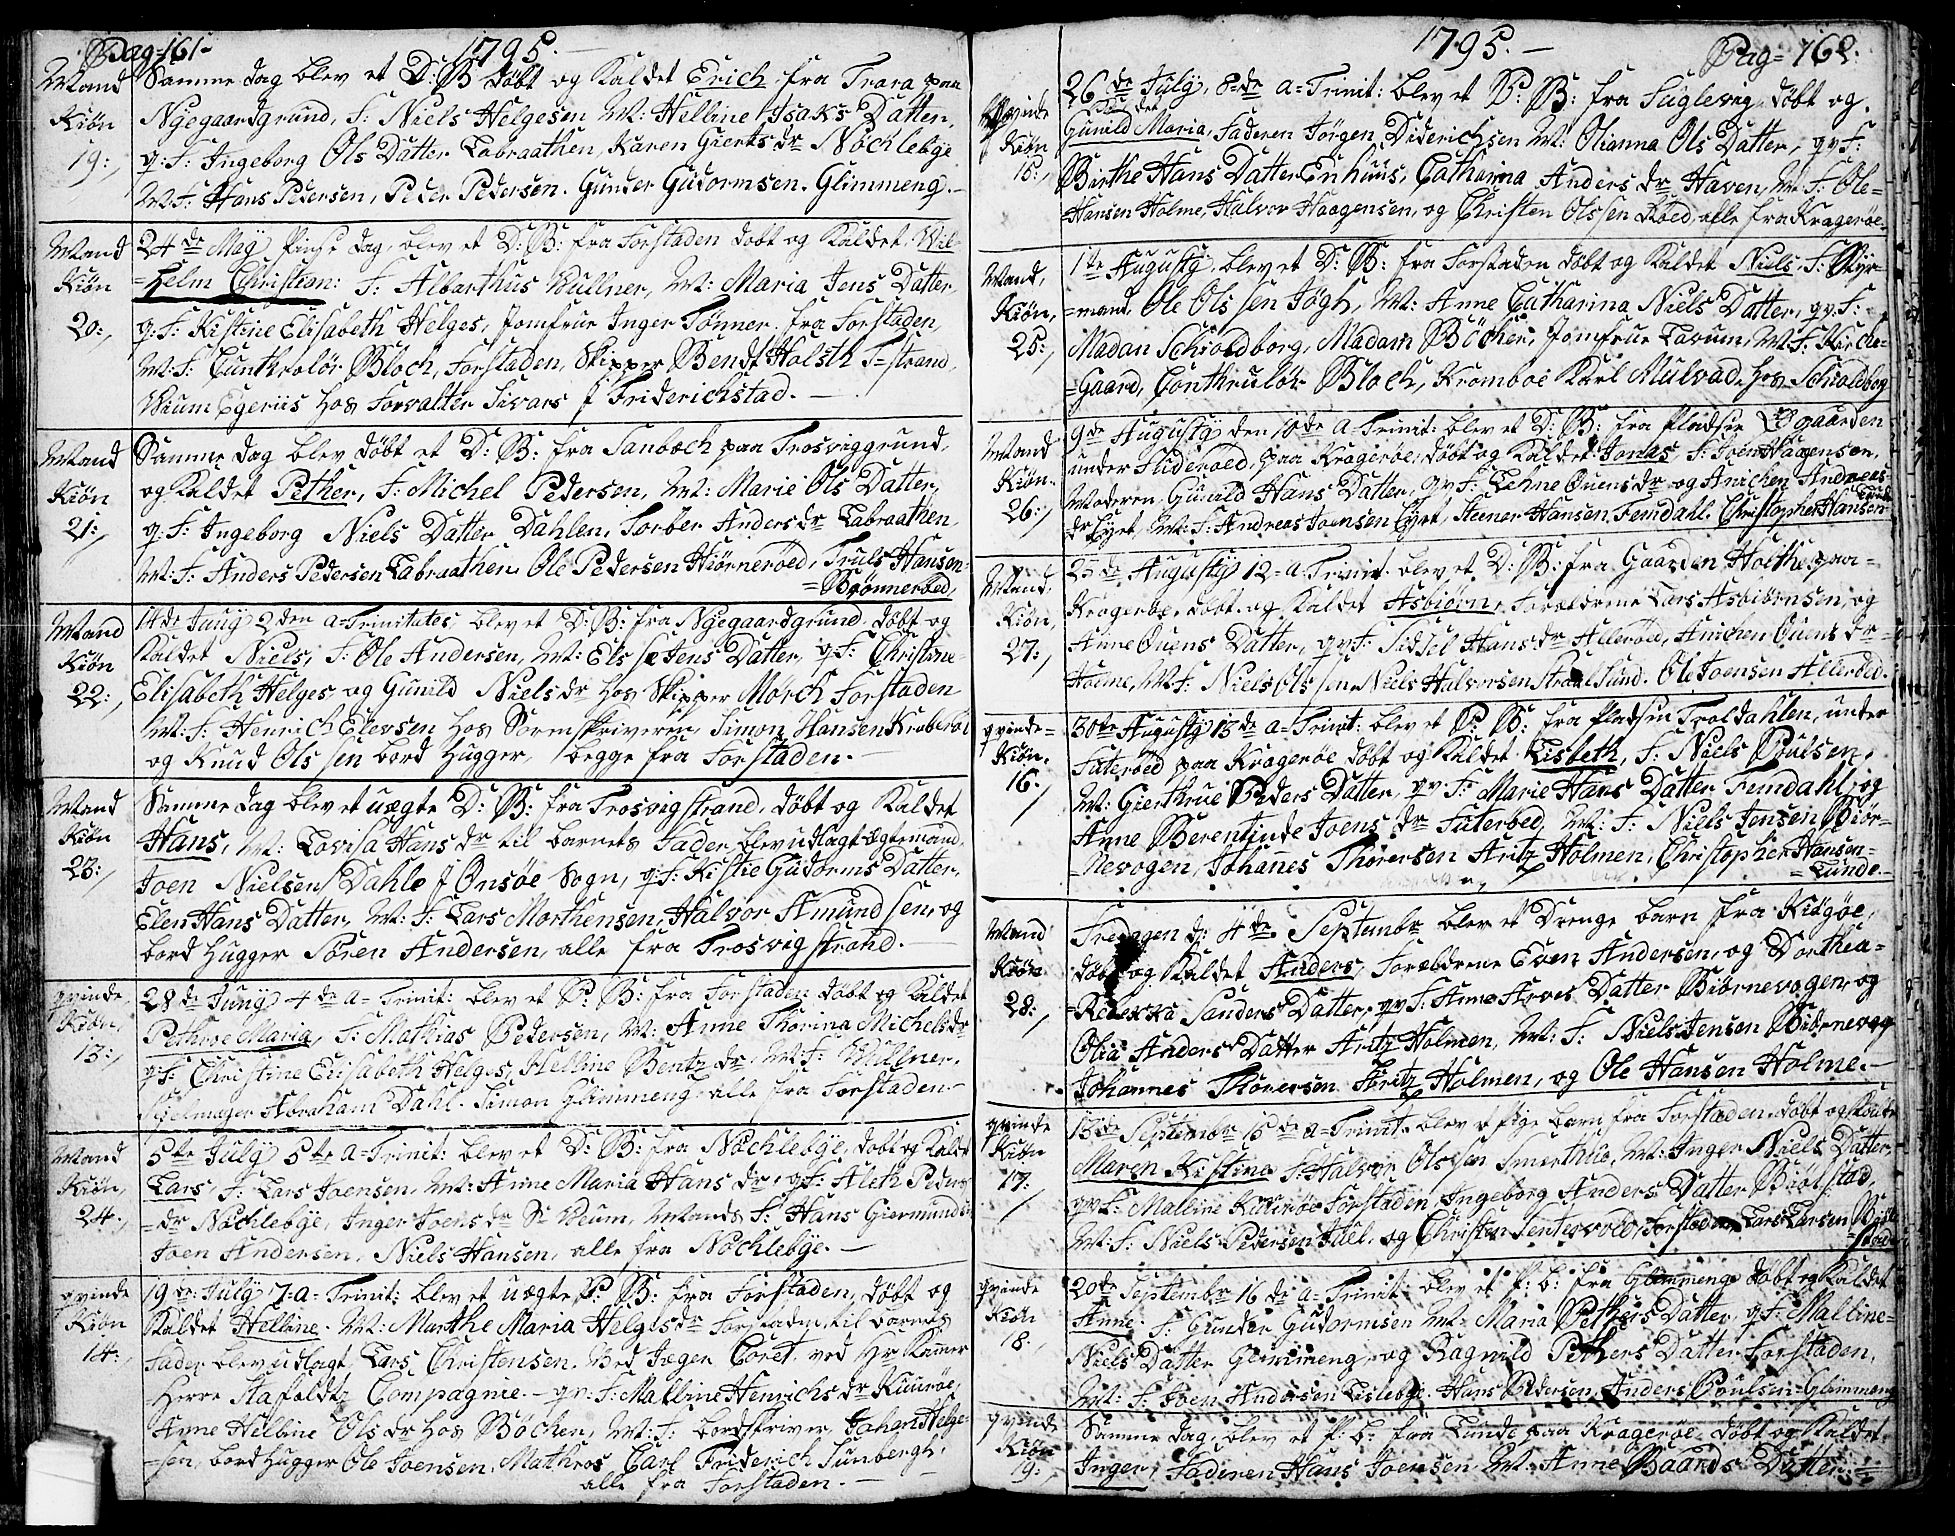 Pag=161- 1795.
Mand Kiøn 19:,
Samme dag blev et D: B: døbt og Kaldet Erich fra Trara paa
Nÿegaardgrund, F: Niels Helgesen M: Helline Isaks Datter,
q: F: Ingeborg Ols Datter Labraathen, Karen Gierts dr Nöchlebÿe
M: F: Hans Pedersen, Peder Pedersen. Gunder Gudormsen. Glimmeng.-
Mand Kiøn 20:,
24de Maÿ Pinse dag, blev et D: B: fra Forstaden døbt og Kaldet Wil-
=helm Christian: F: Albarthus Wullner, M: Maria Jens Datter,
q: F: Kistine Elisabeth Helges, Jomfrue Inger Tønner. fra Forstaden,
M: F: Cunthroløir Bloch, Forstaden, Skipper Bendt Holsth T=strand,
Wium Egeriis hos Forvalter Sivars i Friderichstad. —
Mand Kiøn 21:,
Samme dag blev døbt et D: B: fra Sanbæch paa Trosviggrund,
og Kaldet Pether, F: Michel Pedersen, M: Marie Ols Datter,
q: F: Ingeborg Niels Datter Dahlen, Torber Anders dr Labraathen,
M: F: Anders Pedersen Labraathen Ole Pedersen Hiörneröed, Truls Hansen-
=Brønneröed,
Mand Kiøn 22:,
14de Junÿ 2den a=Trinitates, blev et D: B: fra Nÿegaardgrund døbt og
Kaldet Niels, F: Ole Andersen, M: Elsse Jens Datter, q: F: Christine-
Elisabeth Helges og Gunild Niels dr hos Skipper Mörch Forstaden
M: F: Henrich Elevsen hos Sorenskriveren Simon Hansen
og Knud Olssen bord Hugger, begge fra Forstaden.-
Mand Kiøn 23:,
Samme dag blev et uægte D: B: fra Trosvigstrand, døbt og Kaldet
Hans, M: Lovisa Hans dr til barnets Fader blev udlagt Egtemand,
Joen Nielsen Dahle i Onsøe Sogn, q: F: Kistie Gudorms Datter,
Elen Hans Datter, M: F: Lars Morthensen, Halvor Amundsen, og
bord Hugger Sören Andersen, alle fra Trosvigstrand.-
qvinde, Kiøn, 13:,
28de Junÿ 4de a=Trinit: blev et P: B: fra Forstaden døbt og Kaldet
Pethroe Maria, F: Mathias Pedersen, M: Anne Thorina Michels dr
q: F: Christine Elisabeth Helges, Helline Bentz dr M: F: Wüllner,
Abraham Dahl. Simon Glimmeng. alle fra Forstaden-
Mand Kiøn, 24:,
5te Julÿ 5te a=Trinit: blev et D: B: fra Nöchlebÿe, døbt og Kaldet
Lars, F: Lars Joensen, M: Anne Maria Hans dr, q: F: Aleth Peders
=dr Nöchlebÿe, Inger Joens dr Sr Veum, Mands F: Hans Giermundsen
Joen Andersen, Niels Hansen, alle fra Nöchlebÿe.-
qvinde Kiøn 14:,
19de Julÿ 7=a=Trinit: blev et uægte P: B: fra Forstaden, døbt og
Kaldet Helline. M: Marthe Maria Helges dr Forstaden, til barnets
Fader blev udlagt Lars Christensen. Ved Jæger Coret ved Hr Kamer
Herre Stafeldtz Compagnie.- qv: F: Malline Henrichs dr Kuuröe,
Anne Helline Ols dr hos Böchen, M: F: bordskriver Johan Helge-
=sen, bord Hugger Ole Joensen, Mathros Carl Friderich Sunbergh,
alle fra Forstaden.-
1795.- Pag= 162.
Qvinde Kiøn 15:,
26de Julÿ, 8=de a=Trinit: blev et P: B: fra Suglevig døbt og
Kaldet
Gunild Maria, Faderen Jörgen Diderichsen M: Olianna Ols Datter, qv: F:
Birthe Hans Datter Enhuus, Catharina Anders dr Haven, M: F: Ole=
Hansen Holme, Halvor Haagensen, og Christen Olssen Röed, alle fra Kragerøe.
Mand, Kiøn, 25:,
1te Augustÿ, blev et D: B: fra Forstaden døbt og Kaldet Niels, F: Stÿr-
=mand, Ole Olssen Jögh, M: Anne Catharina Niels Datter, qv: F:
Madan Schioldborg, Madam Böcher, Jomfrue Lasum, M: F: Kirche-
=Gaard, Conthruløir Bloch, Kromboe Karl Mulvad, hos Schioldborg
Mand Kiøn. 26:,
9de Augustÿ den 10de a=Trinit: blev et D: B: fra Pladsen Ødgaarden
under Slideröed, paa Krageröe, døbt og Kaldet Jonas, F: Joen Haagensen,
Moderen Gunild Hans Datter, qv: F: Lehne Ouens dr og Anichen Andreas-
dr Lÿet, M: F: Andreas Joensen Lÿet, Steener Hansen Femdahl. Christopher Hansen
Lunde
Mand, Kiøn, 27:,
23de Augustÿ 12=a=Trinit. blev et D: B: fra Gaarden Holthe paa-
Krageröe døbt og Kaldet Asbiörn, Forældrene Lars Asbiörnsen, og
Anne Ouens Datter, qv: F: Sidsel Hans dr Alleröed, Anichen Ouens dr-
Holme, M: F: Niels Olssen, Niels Halvorsen Straalsund. Ole Joensen Alleröed.
qvinde= Kiøn. 16:,
30te Augustÿ 13de a=Trinit: blev et P: B: fra Pladsen Troldahlen, under
Suteröed paa Krageröe døbt og Kaldet Lisbeth, F: Niels Poulsen,
M: Gierthrue Peders Datter, qv: F: Marie Hans Datter Femdahl, og
Anne Berentinde Joens dr Suteröed, M: F: Niels Jensen Biör-
=nevogen, Johanes Thorersen Aritz Holmen, Christopher Hansen-
=Lunde.-
Mand Kiøn 28:,
Fredagen d: 4de Septembr blev et Drenge barn fra Kiøgöe,
døbt og Kaldet Anders, Forældrene Even Andersen, og Dorthea=
=Rebekka Sanders Datter, qv: F: Anne Arves Datter Biörnevogen, og
Olia Anders Datter Aritz Holmen, M: F: Niels Jensen Biörnevog
Johannes Thorersen Aritz Holmen, og Ole Hansen Holme.-
qvinde Kiøn 17:,
13de Septembr 15de a=Trinit. blev et Pige barn fra Forstaden døbt og Kaldet
Maren Kistine F: Halvor Olssen Smerthue, M: Inger Niels Datter,
qv: F: Malline Kuuröe Forstaden, Ingeborg Anders Datter Biölstad,
M: F: Niels Pedersen Huel, og Christen Sentesvold, Forstaden, Lars Larsen Biöl
=stad
qvinde Kiøn 18:,
20de Septembr 16de a=Trinit- blev et P: b: fra Glemmeng døbt og Kaldet
Anne. F: Gunder Gudormsen M: Maria Pethers Datter, q: F: Malline=
Niels Datter Glemmeng, og Ragnild Pethers Datter Forstaden,
M: F: Joen Andersen Lislebÿe. Hans Pedersen, Anders Poulsen=Glimmeng
qvinde Kiøn 19:,
Samme dag, blev et P: b: fra Lunde paa Krageröe, døbt og Kaldet
Inger, Faderen Hans Joensen, M: Anne Baards Datter,=